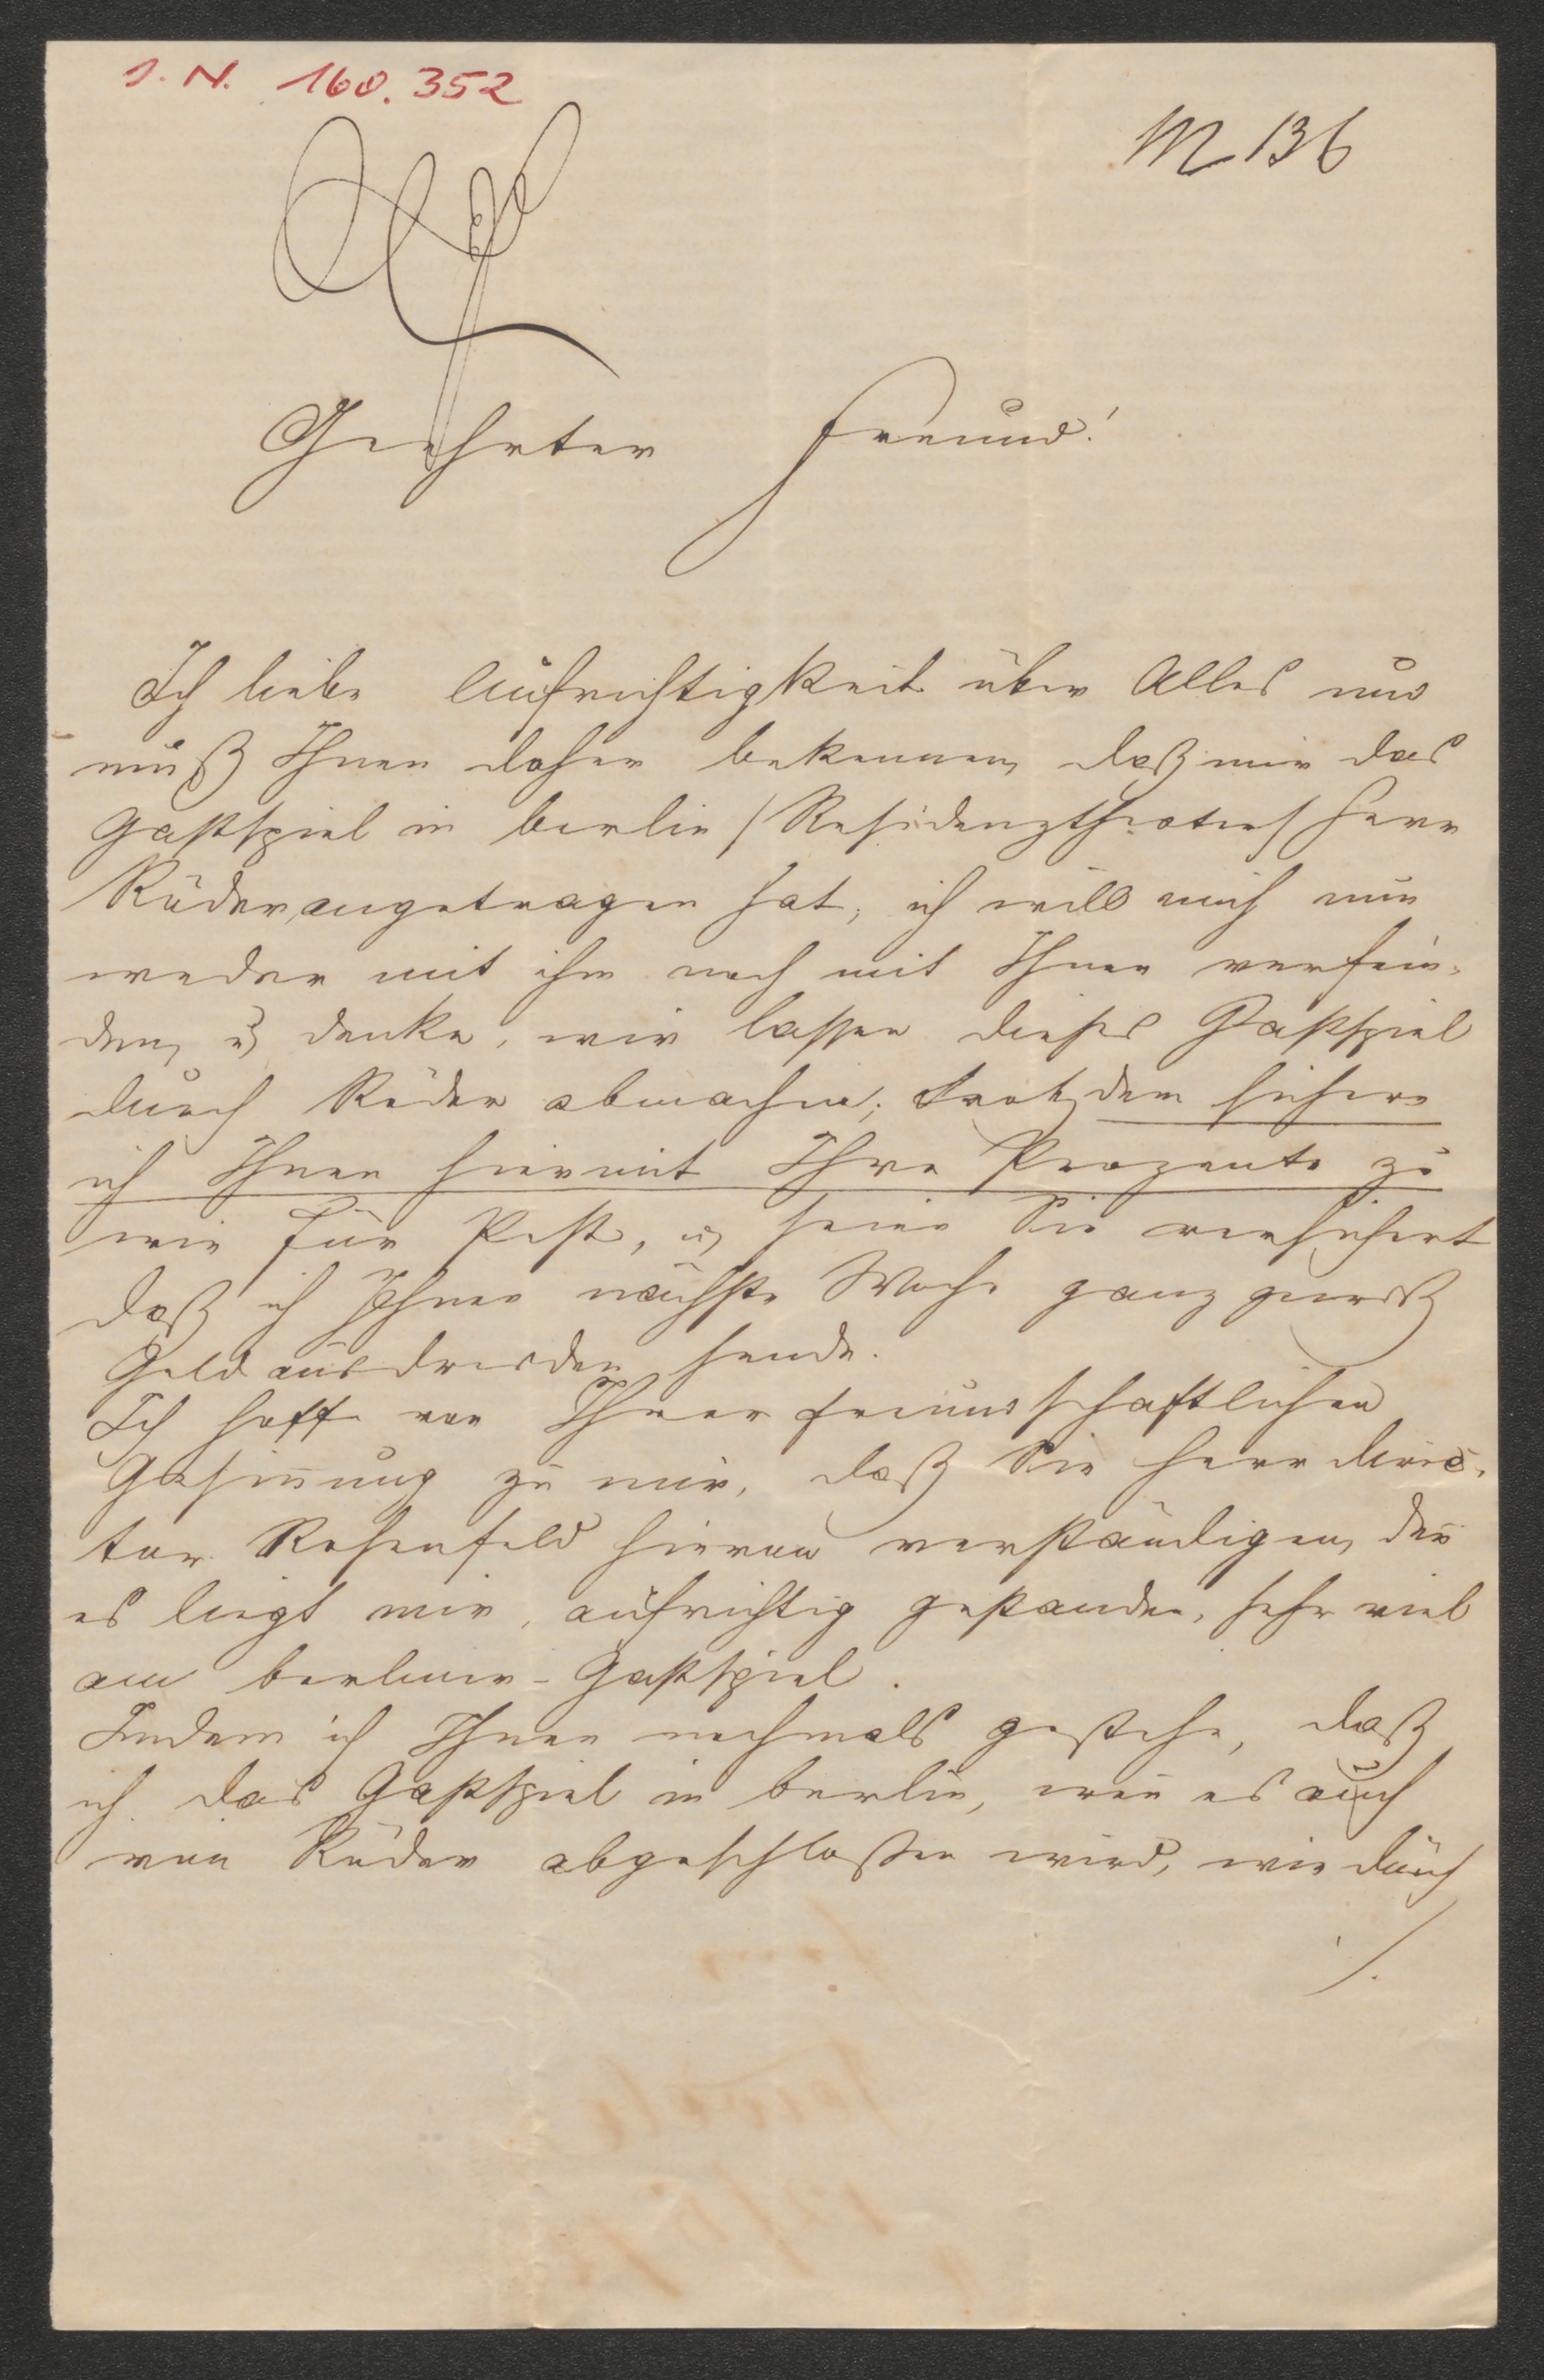 I. N. 160.352
M 136
Geehrter Freund!
Ich liebe Aufrichtigkeit über Alles und
muß Ihnen daher bekennen, daß mir das
Gastspiel in Berlin /Residenztheater/ Herr
Röder, angetragen hat, ich will mich nun
weder mit ihm noch mit Ihnen verfein-
den, u denke, wir lassen dieses Gastspiel
durch Röder abmachen; trotzdem sichere
ich Ihnen hiermit Ihre Prozente zu
wie für Pest, u seien Sie versichert
daß ich Ihnen nächste Woche ganz gewiß
Geld aus Dresden sende.
Ich hoffe von Ihrer freundschaftlichen
Gesinnung zu mir, daß Sie Herr Direc-
tor Rosenfeld hievon verständigen, den
es liegt mir, aufrichtig gestanden, sehr viel
am Berliner-Gastspiel.
Indem ich Ihnen nochmals gestehe, daß
ich das Gastspiel in Berlin, wen es auch
von Röder abgeschlossen wird, wie durch
/.